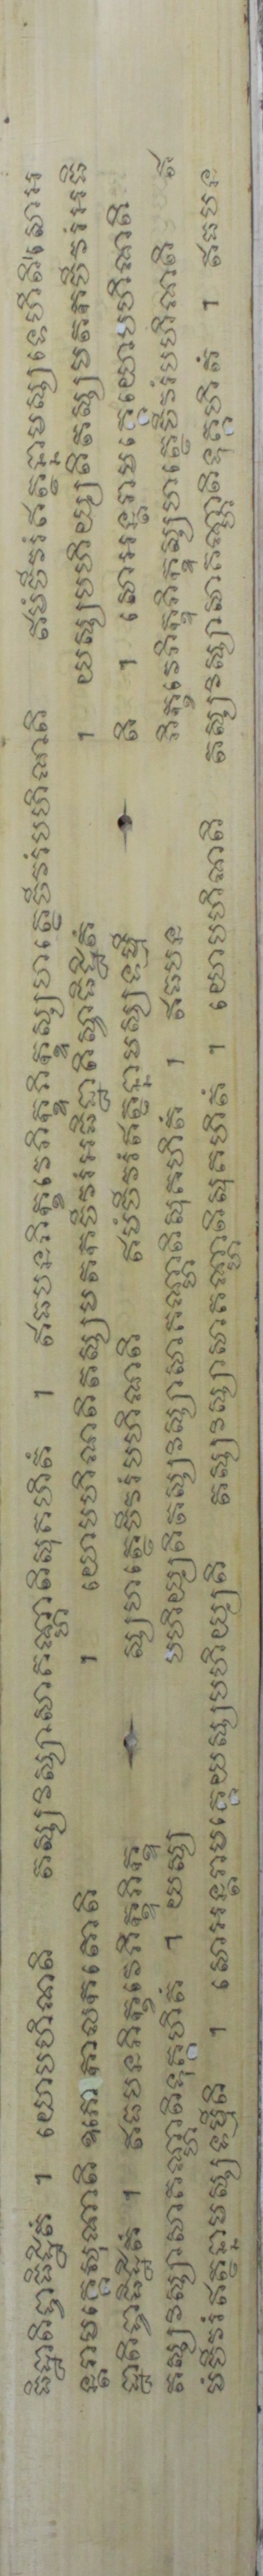 ធិដ្ឋាតិទ្វាធិដ្ឋិតំ ។ យោបហិណតិ តស្សវស្សាសាគណ្ហាតិសុគហិតំ ។ ឥធបនភិក្ខវេភិក្ខុភិក្ខុស្សហត្ថេចីវរំបហិណាតិ ឥមំចីវរំឥត្ថន្នាមស្សទេហីតិសោអ
ន្តរាមគ្គេសុណាតិ ឧភោកាលកតោតិ ។ យោបហិណតិតស្សមតកចីវរំអធិដ្ឋាតិស្វាធិដ្ឋិតំ ។ យស្សបហិយ្យតិតស្សមតកចីវរំអធិ
ដ្ឋាតិទ្វាធិដ្ឋិតំ ។ ឥធបនភិក្ខវេភិក្ខុភិក្ខុ ស្សហត្ថេចីវរំបហិណតិ ឥមំចីវរំឥត្ថន្នាមស្សទម្មី តិ ។ សោអន្តរាមគ្គេយោបហិណតិ
តស្សវស្សាសាគណ្ហាតិទុគ្គហិតំ ។ យស្ស បហិយ្យតិតស្សវស្សាសាគណ្ហាតិសុគហិតំ ។ ឥធបន ភិក្ខវេភិក្ខុភិក្ខុស្សហត្ថេចីវរំបហិណតិ ឥ
មំចីវរំឥត្ថន្នាមស្សទម្មីតិ ។ សោអន្តរាមគ្គេយស្សបហិយ្យតិ តស្សវស្សាសាគណ្ហាតិសុគហិតំ ។ យោបហិណតិ តស្សវស្សាសាគណ្ហាតិទុគ្គហិតំ ។ ឥធបន